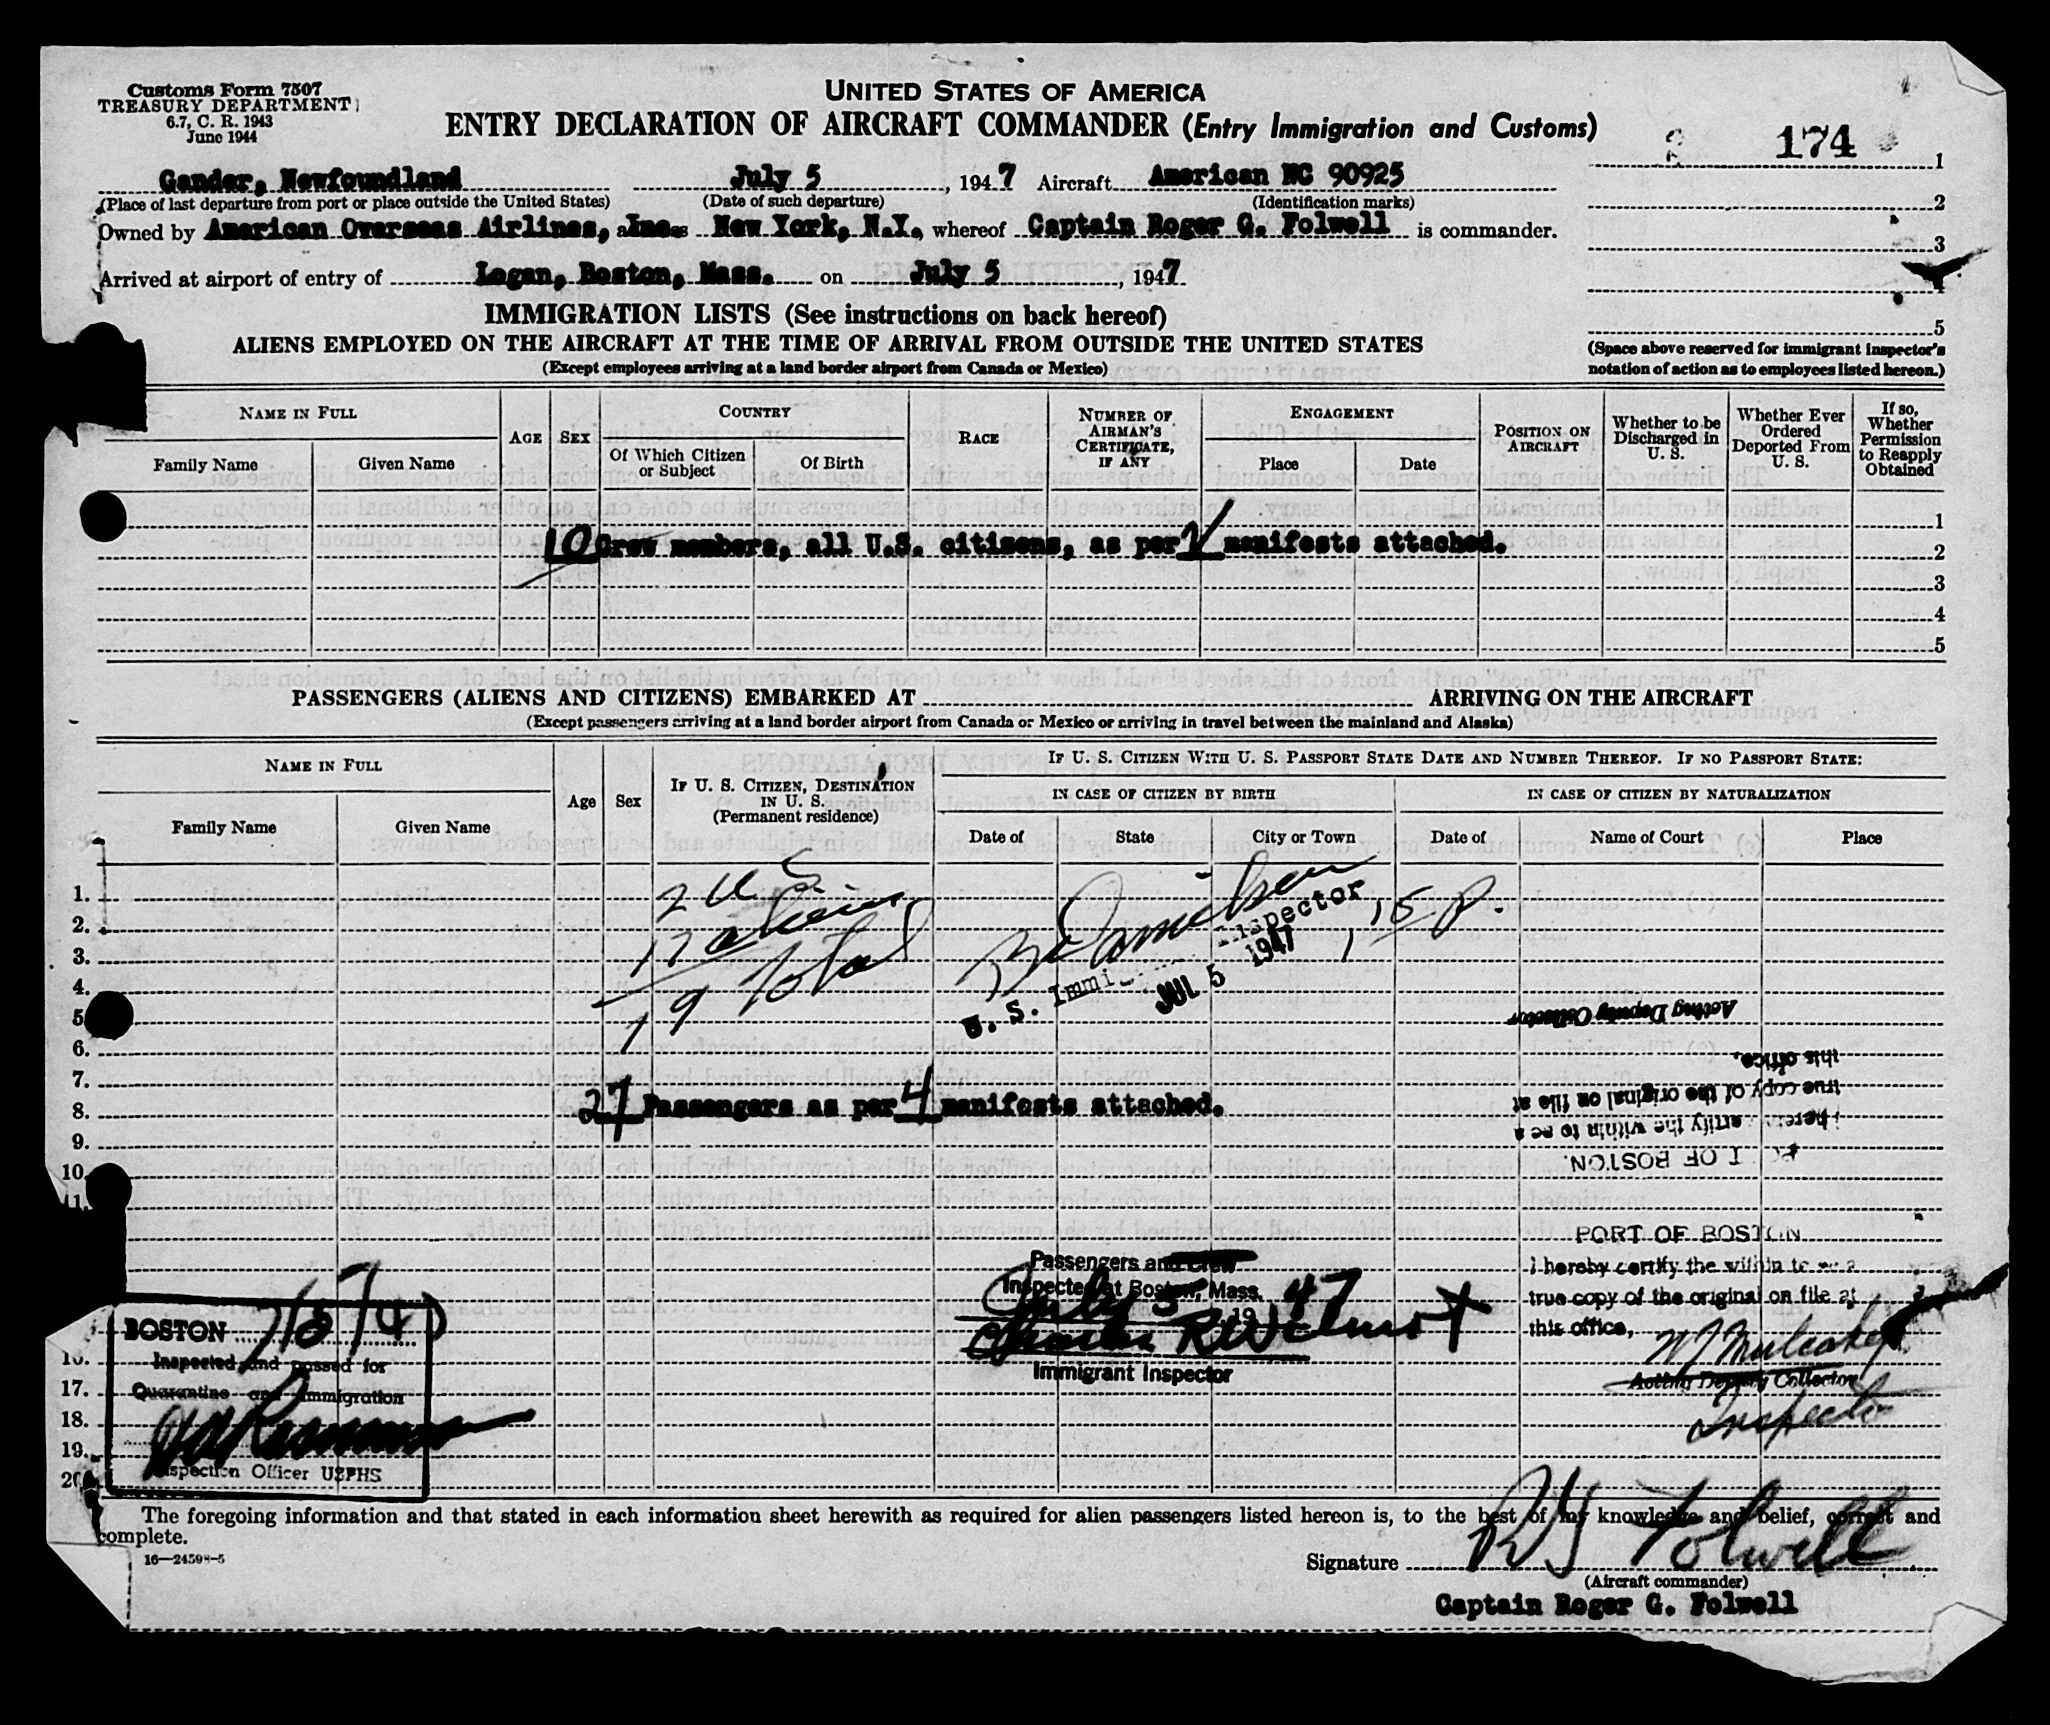 Customs Form 7507
TREASURY DEPARTMENT
6.7, C. R. 1943
June 1944
UNITED STATES OF AMERICA
ENTRY DECLARATION OF AIRCRAFT COMMANDER (Entry Immigration and Customs)
174
1
Gander, Newfoundland July 5, 1947 Aircraft American NC 90925
(Place of last departure from port or place outside the United States) (Date of such departure) (Identification marks)
2
Owned by American Overseas Airlines, Inc. New York, N.Y., whereof Captain Roger G. Folwell is commander.
3
Arrived at airport of entry of Logan, Boston, Mass. on July 5, 1947
4
IMMIGRATION LISTS (See instructions on back hereof)
5
ALIENS EMPLOYED ON THE AIRCRAFT AT THE TIME OF ARRIVAL FROM OUTSIDE THE UNITED STATES
(Except employees arriving at a land border airport from Canada or Mexico)
(Space above reserved for immigrant inspector's
notation of action as to employees listed hereon.)
NAME IN FULL
Family Name
Given Name
AGE
SEX
COUNTRY
Of Which Citizen
or Subject
Of Birth
RACE
NUMBER OF
AIRMAN'S
CERTIFICATE,
IF ANY
ENGAGEMENT
Place
Date
POSITION ON
AIRCRAFT
Whether to be
Discharged in
U. S.
Whether Ever
Ordered
Deported From
U. S.
If so,
Whether
Permission
to Reapply
Obtained
1
10 Crew members, all U.S. citizens, as per manifests attached.
2
3
4
5
PASSENGERS (ALIENS AND CITIZENS) EMBARKED AT ARRIVING ON THE AIRCRAFT
(Except passengers arriving at a land border airport from Canada or Mexico or arriving in travel between the mainland and Alaska)
NAME IN FULL
Family Name
Given Name
Age
Sex
IF U. S. CITIZEN, DESTINATION
IN U. S.
(Permanent residence)
IF U. S. CITIZEN WITH U. S. PASSPORT STATE DATE AND NUMBER THEREOF. IF NO PASSPORT STATE:
IN CASE OF CITIZEN BY BIRTH
IN CASE OF CITIZEN BY NATURALIZATION
Date of
State
City or Town
Date of
Name of Court
Place
1.
2.
3.
4.
5
6.
7.
8.
9.
10
2 U S
17 aliens
19 Total
U. S. Immi Inspector
JUL 5 1947
15 P.
Acting Deputy Collector
this office,
true copy of the original on file at
hereby certify the within to be a
PORT OF BOSTON.
27 Passengers as per 4 manifests attached.
PORT OF BOSTON
I hereby certify the within to be a
true copy of the original on file at
this office,
Acting Deputy Collector
Inspector
Passengers and Crew
Inspected at Boston, Mass.
July 5 1947
Immigrant Inspector
BOSTON
Inspected and passed for
Quarantine and Immigration
Inspection Officer USPHS
16.
17.
18.
19.
20
The foregoing information and that stated in each information sheet herewith as required for alien passengers listed hereon is, to the best of my knowledge and belief, correct and
complete.
16—24598-5
Signature R G Folwell
(Aircraft commander)
Captain Roger G. Folwell